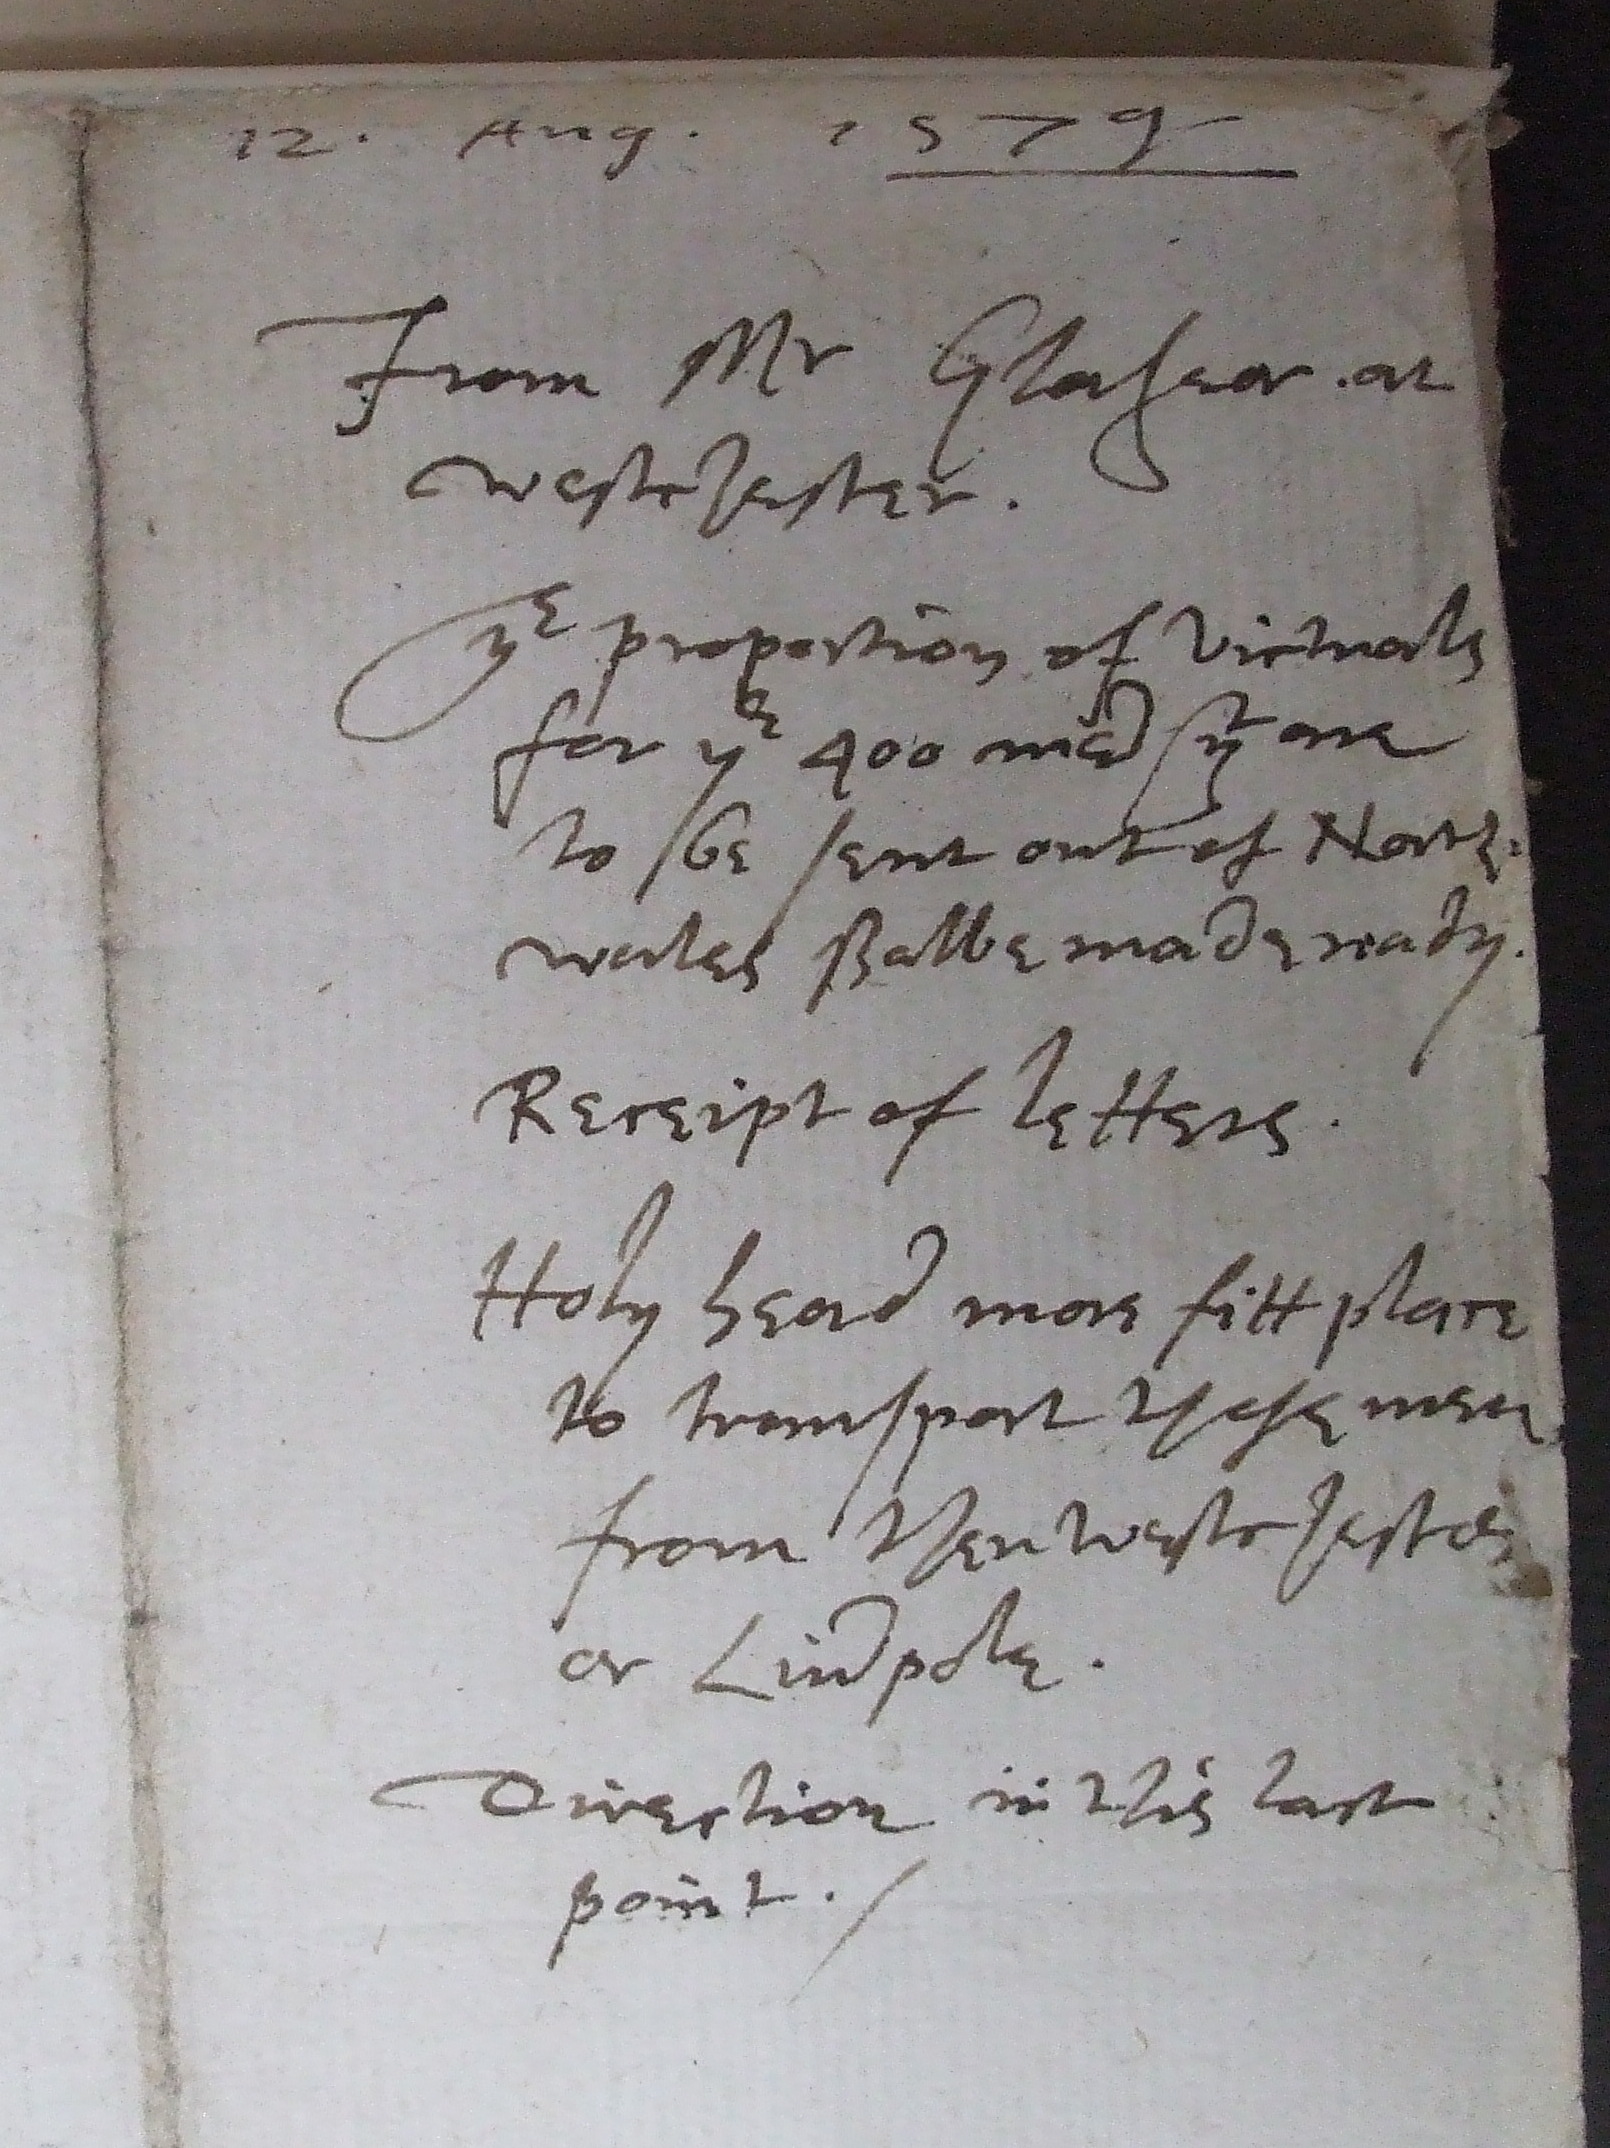 12. Aug. 1579
From Mr Glasear. at
westchester.
ye proportion of victuals
for ye 400 men yt are
to be sent out of North-
wales shalbe made ready.
Receipt of letters.
Holy head more fitt place
to transport these men
from then westchester
or Lirpole.
Direction in this last
point ./